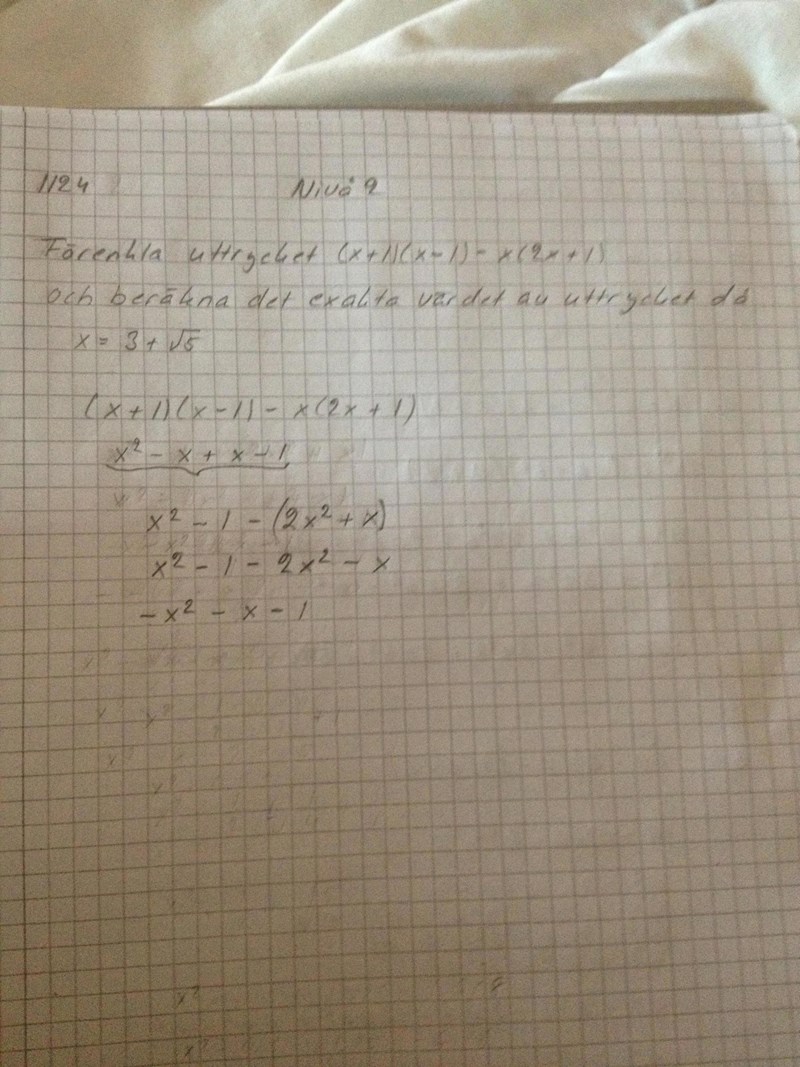 1124 Nivå 2
Förenkla uttrycket (x+1)(x-1) - x(2x+1)
och beräkna det exakta värdet av uttrycket då
x = 3 + √5
(x+1)(x-1) - x(2x+1)
x² - x + x - 1
x² - 1 - (2x² + x)
x² - 1 - 2x² - x
-x² - x - 1